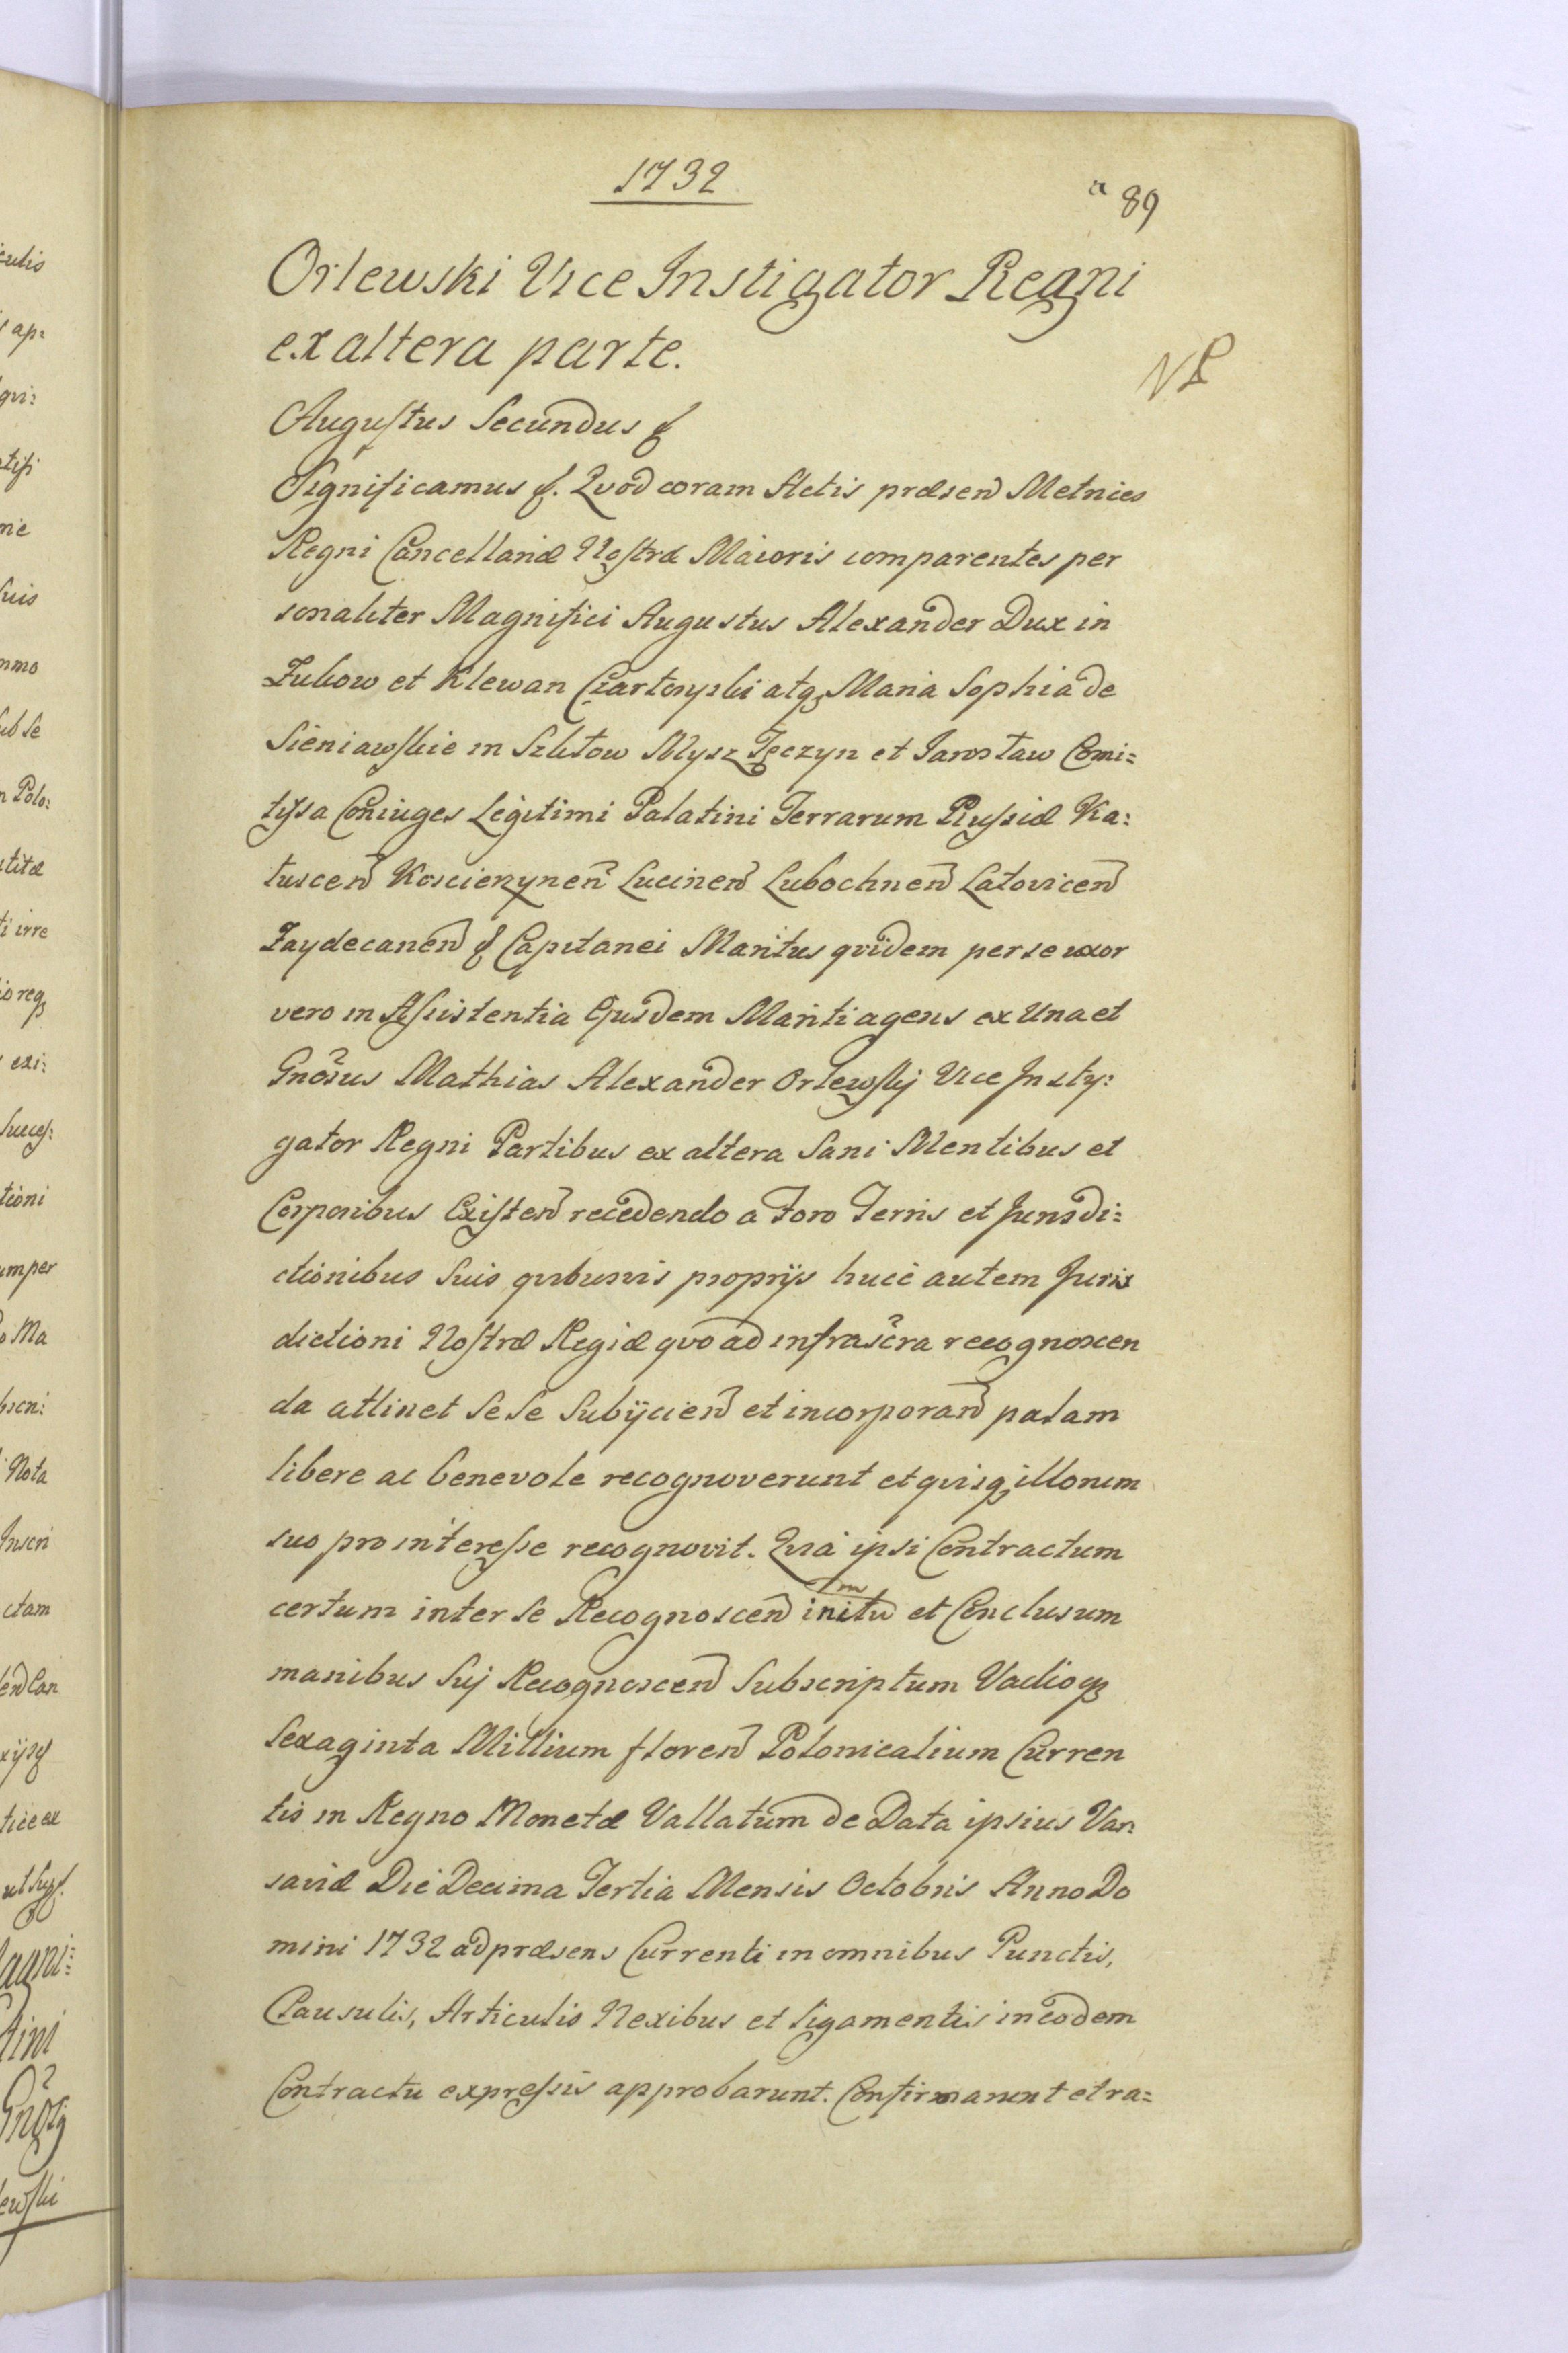 1732
a 89
Orlewski Vice Instigator Regni
ex altera parte.
NP
Augustus Secundus &
Significamus &. Quod coram Actis præsen Metrices
Regni Cancellariæ Nostræ Maioris comparentes per
sonaliter Magnifici Augustus Alexander Dux in
Zukow et Klewan Czartoryski atq Maria Sophia de
Sieniawskie in Szkłow Mysz Tęczyn et Jarosław Comi=
tissa Coniuges Legitimi Palatini Terrarum Russiæ Ka:
tuscen Koscierzynen Lucinen Lubochnen Latovicen
Zaydecanen & Capitanei Maritus qvidem per se uxor
vero in Assistentia Ejusdem Mariti agens ex Una et
Gnosus Mathias Alexander Orlewskij Vice Insty:
gator Regni Partibus ex altera Sani Mentibus et
Corporibus Existen recedendo a Foro Terris et Jurisdi=
ctionibus Suis qvibusvis proprijs huic autem Juris
dictioni Nostræ Regiæ qvo ad infrascra recognoscen
da attinet Se Se Subijcien et incorporan palam
libere ac benevole recognoverunt et qvisq illorum
suo pro interesse recognovit. Qvia ipsi Contractum
certum inter Se Recognoscen initum et Conclusum
manibus Suj Recognoscen Subscriptum Vadioq
Sexaginta Millium floren Polonicalium Curren
tis in Regno Monetæ Vallatum de Data ipsius Var:
saviæ Die Decima Tertia Mensis Octobris Anno Do
mini 1732 ad præsens Currenti in omnibus Punctis,
Clausulis, Articulis Nexibus et ligamentis in eodem
Contractu expressis approbarunt. Confirmarunt et ra=